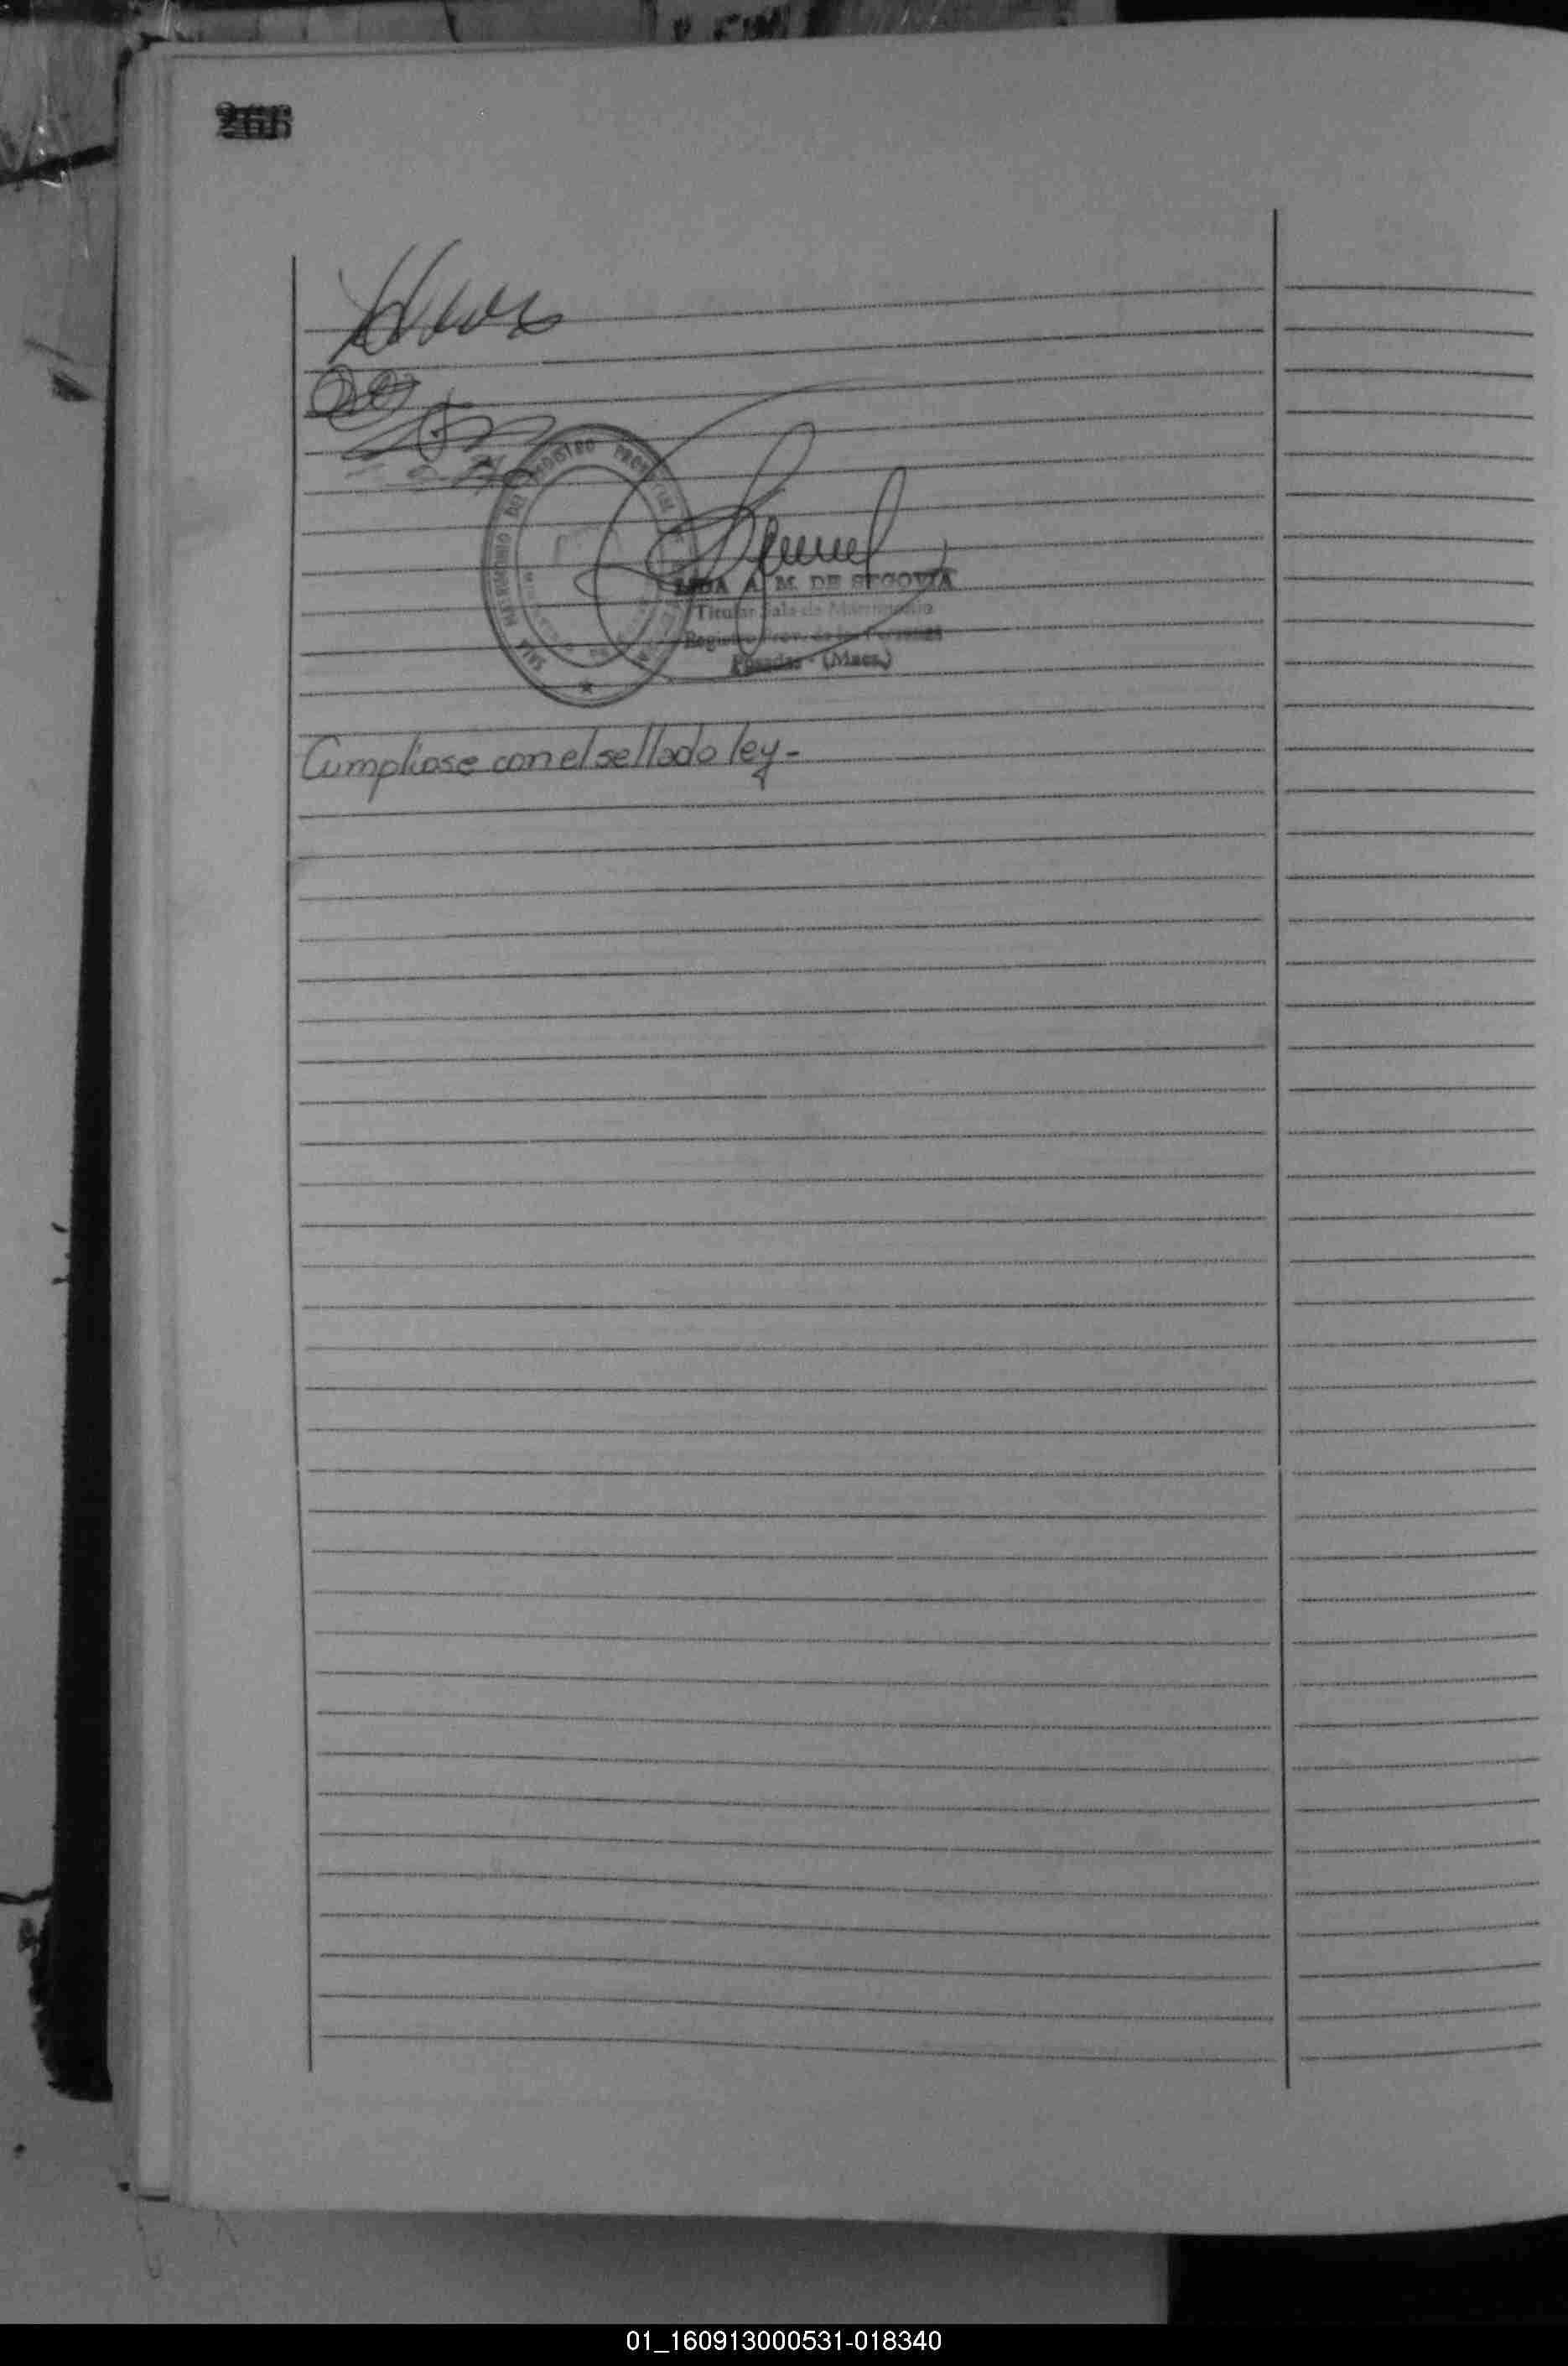 266
SALA MATRIMONIO DEL REGISTRO PROVINCIAL
LIDA A. M. DE SEGOVIA
Titular Sala de Matrimonio
Registro Prov. de las Personas
Posadas - (Mnes.)
Cumpliose con el sellado ley-
01_160913000531-018340